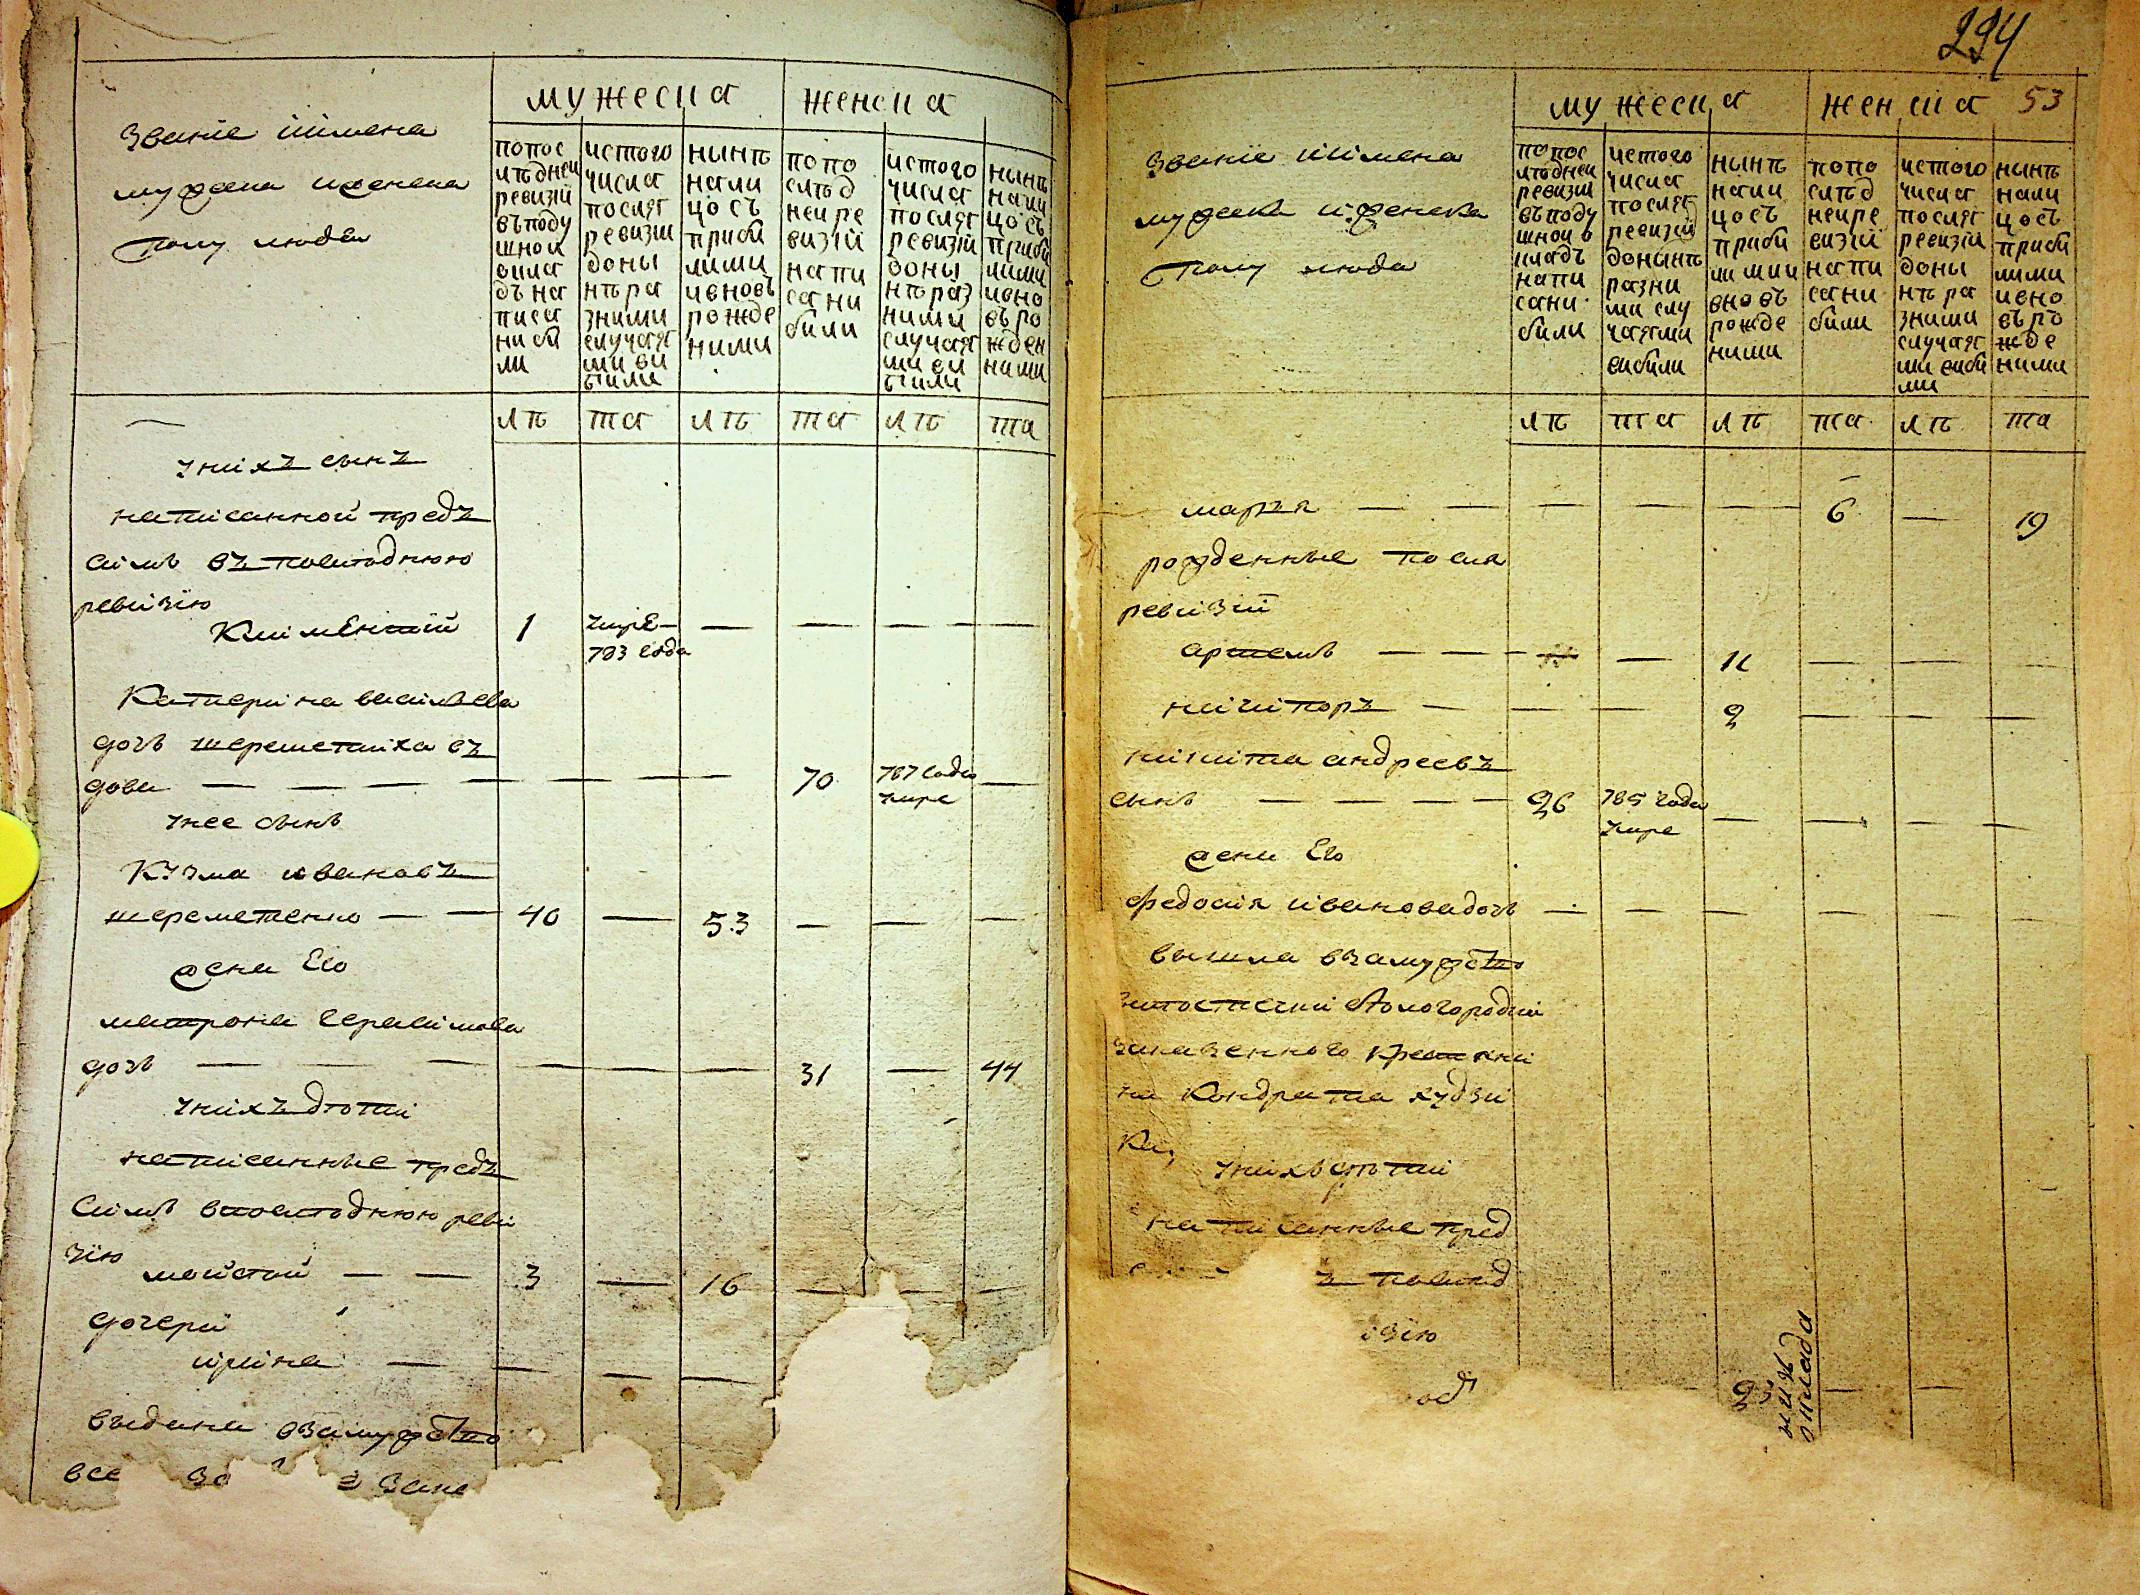 званїе иимена
мужеска иженска
полу люде
мужеска
женска
попос лѣдней ревизїи въподу шной окла дъ на писа ни бы ли
истого числа послѣ ревизїи доны нѣ ра зними случая ми вы были
нынѣ нали цо съ прибы лыми иновъ рожде ними
попо слѣд ней ре визїи напи сани были
истого числа послѣ ревизїи доны нѣраз ними случая ми вы были
нынѣ нали цо съ прибы лыми ино въро жден ними
лѣ та лѣ та лѣ та
унихъ сынъ
написанной предъ
симъ въ последнюю
ревизїю
Климентїй 1 умре 783 года
Катерина васильева
дочь шереметиха въ
дова 70 787 года умре
унее сынъ
Кузма ивановъ
шереметенко 40 53
жена Его
матрона Герасимова
дочь 31 44
унихъ дѣти
написанные предъ
Симъ впоследнюю реви
зїю
мойсей 3 16
дочери
ирина
выдана взамужство
все
294
53
званїе иимена
мужеска иженска
полу люде
мужеска
женска
попос лѣдней ревизїи въподу шной о кладъ напи сани были
истого числа послѣ ревизїй донынѣ разни ми слу чаями выбыли
нынѣ нали цо съ прибы лыми и вновъ рожде ними
попо слѣд ней ре визїй напи сани были
истого числа послѣ ревизїй доны нѣ ра зними случая ми выбы ли
нынѣ нали цо съ прибы лыми ино въ ро жде ними
лѣ та лѣ та лѣ та
марья 6 19
рожденные после
ревизїй
артемъ 11
ничипоръ 2
никита андреевъ
сынъ 26 785 года умре
жена Его
федосия ивановадочь
вышла взамужство
Кондрата худзи
ка,
унихъ дѣти
написанные пред
ъ послед
изїю